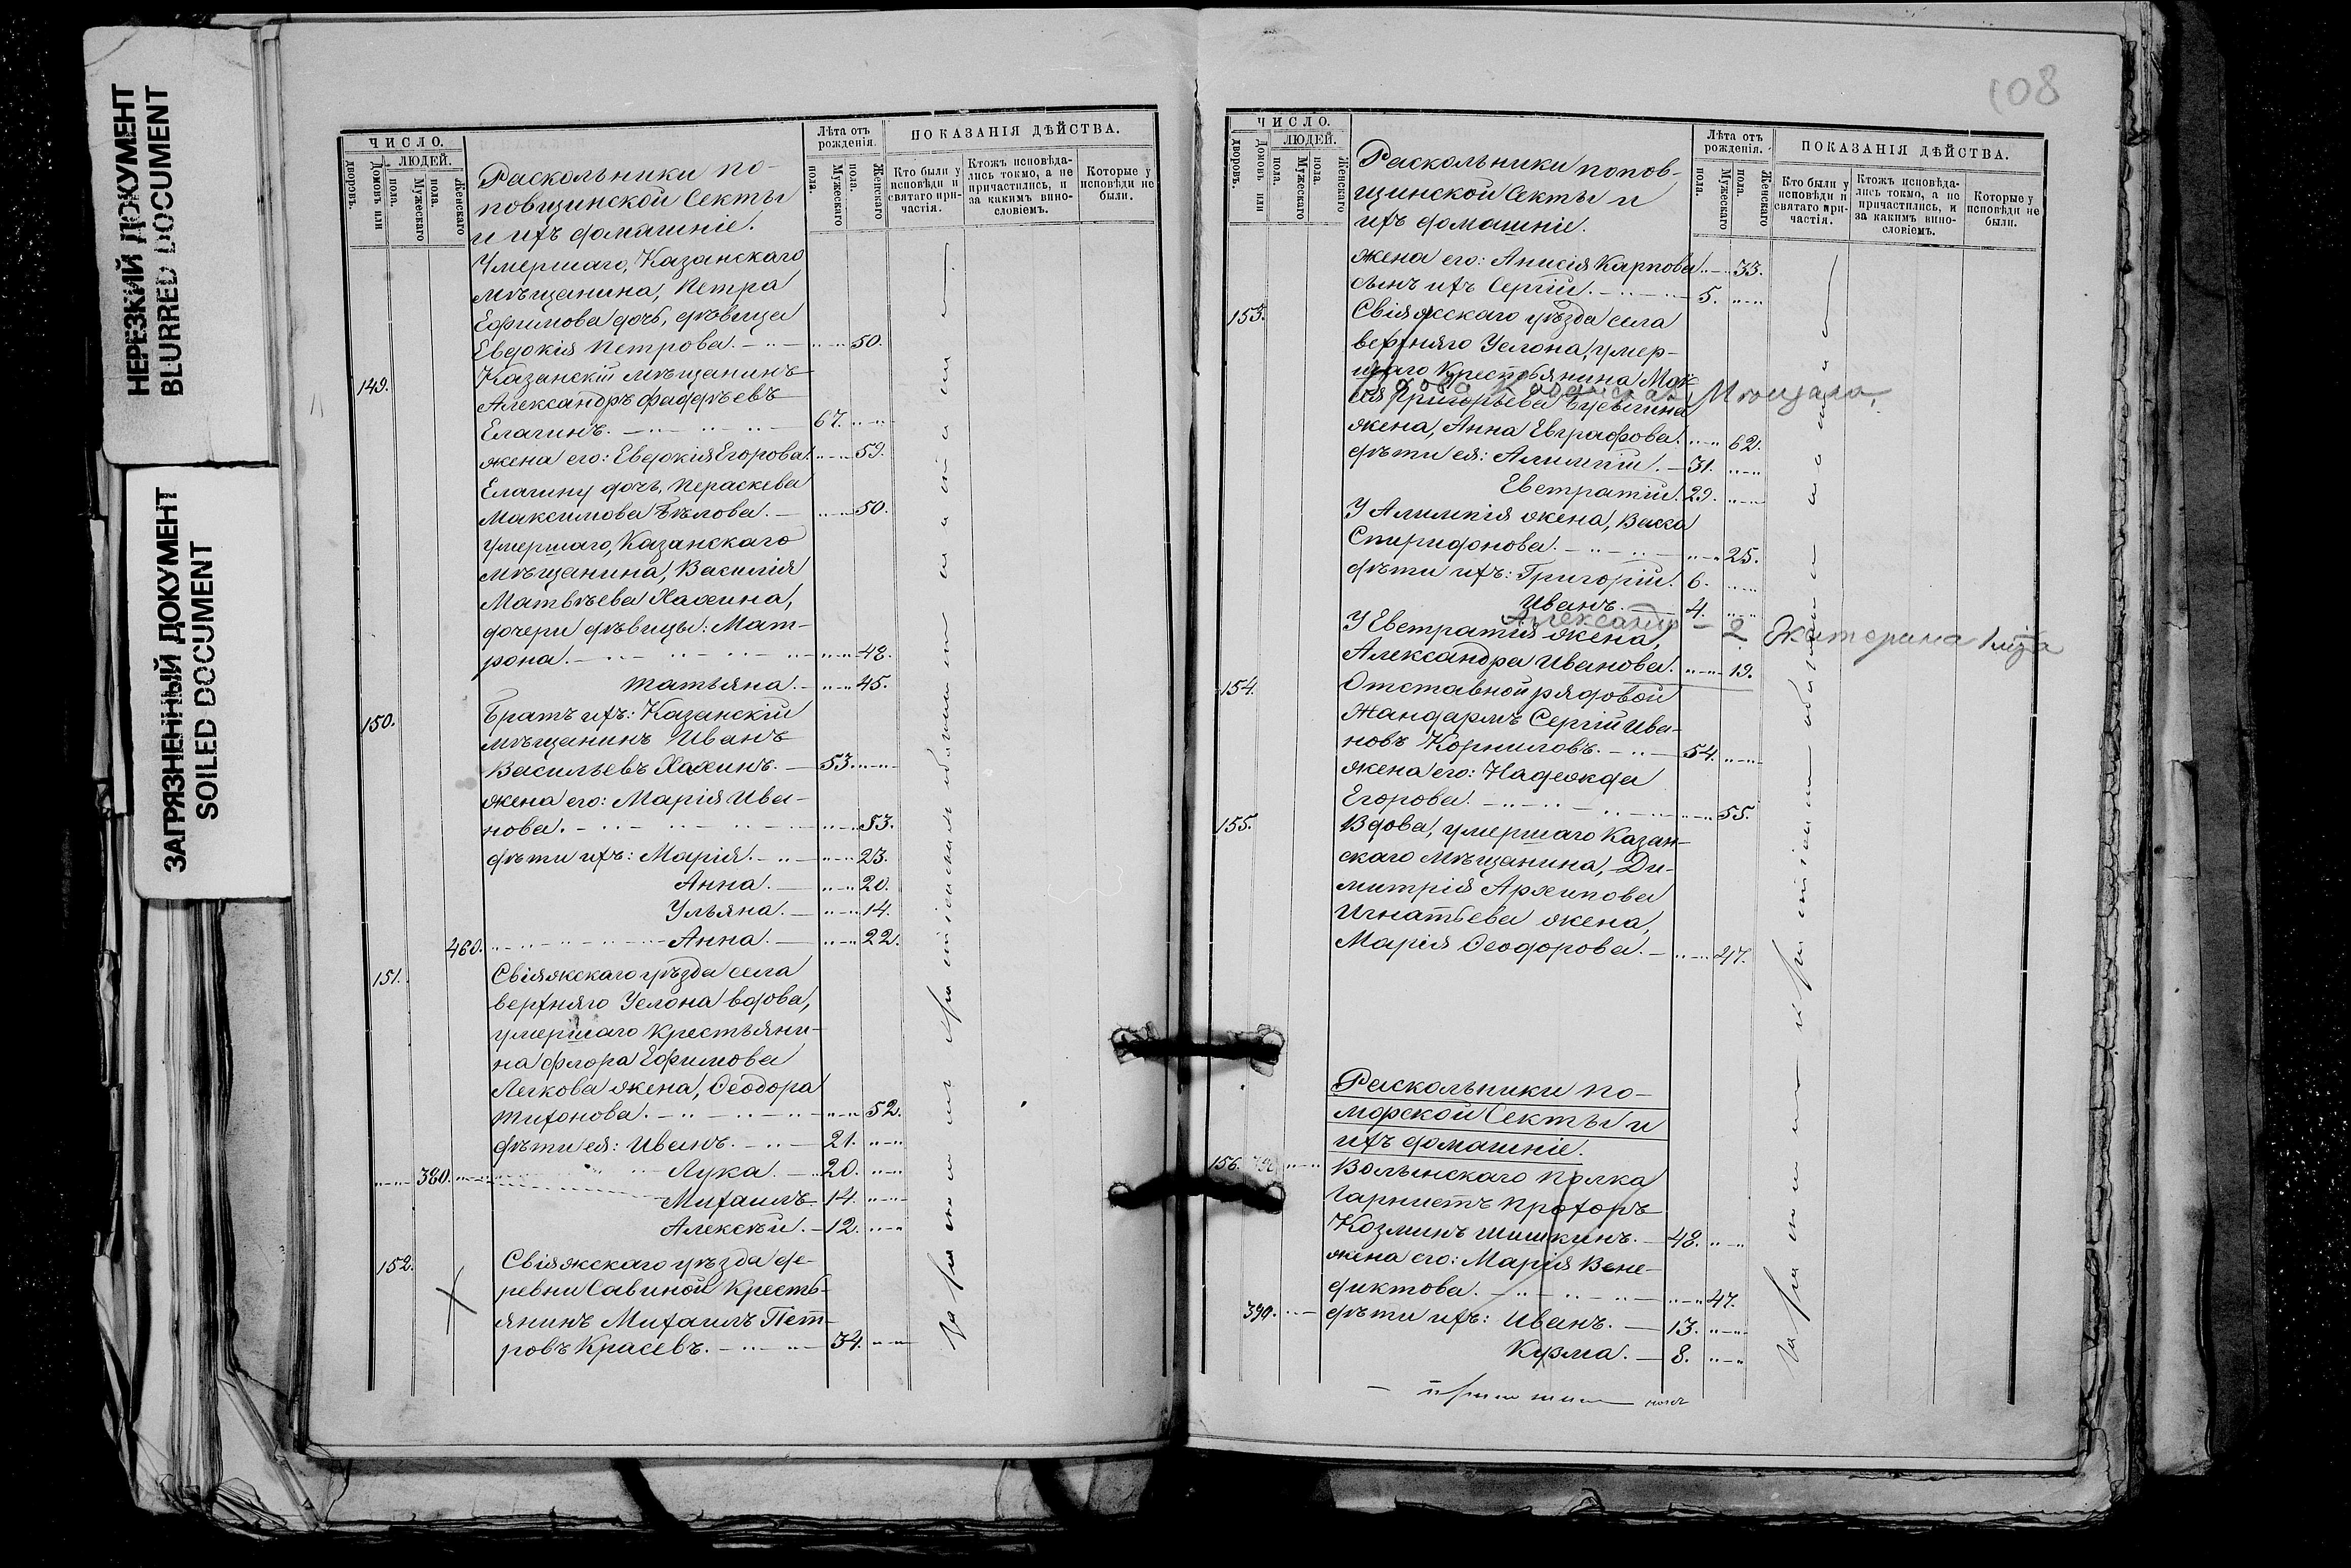 НЕРЕЗКИЙ ДОКУМЕНТ
BLURRED DOCUMENT
ЗАГРЯЗНЕННЫЙ ДОКУМЕНТ
SOILED DOCUMENT
ЧИСЛО.
ЛЮДЕЙ.
Домовъ или дворовъ.
Мужескаго пола.
Женскаго пола.
Лѣта отъ рожденія.
Мужескаго пола.
Женскаго пола.
ПОКАЗАНІЯ ДѢЙСТВА.
Кто были у исповѣди и святаго причастія.
Ктожъ исповѣдались токмо, а не причастились, и за какимъ винословіемъ.
Которые у исповѣди не были.
Раскольники по-
повщинской Секты
и ихъ домашніе.
Умершаго, Казанскаго
мѣщанина, Петра
Ефимова дочь, дѣвица
Евдокія Петрова. 50.
149. Казанскій мѣщанинъ
Александръ Фаддѣевъ
Елагинъ. 67.
жена его: Евдокія Егорова. 59.
Елагину дочь, Пераскева
Максимова Бѣлова. 50.
умершаго, Казанскаго
мѣщанина, Василія
Матвѣева Хахина,
дочери дѣвицы: Мат-
рона. 48.
Татьяна. 45.
150. Братъ ихъ: Казанскій
мѣщанинъ Иванъ
Васильевъ Хахинъ. 53.
жена его: Марія Ива-
нова. 53.
дѣти ихъ: Марія. 23.
Анна. 20.
Ульяна. 14.
460. Анна. 22.
151. Свіяжскаго уѣзда села
верхняго Услона вдова,
умершаго крестьяни-
на Флора Ефимова
Легкова жена, Ѳеодора
Тихонова. 52.
дѣти ея: Иванъ. 21.
380. Лука. 20.
Михаилъ. 14.
Алексѣй. 12.
152. Свіяжскаго уѣзда де-
ревни Савиной Кресть-
янинъ Михаилъ Пет-
ровъ Красевъ. 34.
108
ЧИСЛО.
ЛЮДЕЙ.
Домовъ или дворовъ.
Мужескаго пола.
Женскаго пола.
Лѣта отъ рожденія.
Мужескаго пола.
Женскаго пола.
ПОКАЗАНІЯ ДѢЙСТВА.
Кто были у исповѣди и святаго причастія.
Ктожъ исповѣдались токмо, а не причастились, и за какимъ винословіемъ.
Которые у исповѣди не были.
Раскольники попов-
щинской Секты и
ихъ домашніе.
жена его: Анисія Карпова. 33.
сынъ ихъ Сергій. 5.
153. Свіяжскаго уѣзда села
верхняго Услона, умер-
шаго Крестьянина
Григорьева
жена, Анна Евграфова. 62.
дѣти ея: Алимпій. 31.
Евстратій. 29.
У Алимпія жена, Васса
Спиридонова. 25.
дѣти ихъ: Григорій. 6.
Иванъ. 4.
Александр 2 Екатерина
У Евстратія жена,
Александра Иванова. 19.
154. Отставной рядовой
Жандармъ Сергій Ива-
новъ Корниловъ. 54.
жена его: Надежда
Егорова. 55.
155. Вдова, умершаго Казан-
скаго мѣщанина, Ди-
митрія Архипова
Игнатьева жена,
Марія Ѳеодорова. 47.
Раскольники по-
морской Секты и
ихъ домашніе.
156. Волынскаго полка
Гарнистъ Прохоръ
Козминъ Шишкинъ. 48.
жена его: Марія Вене-
диктова. 47.
390. дѣти ихъ: Иванъ. 13.
Кузма. 8.